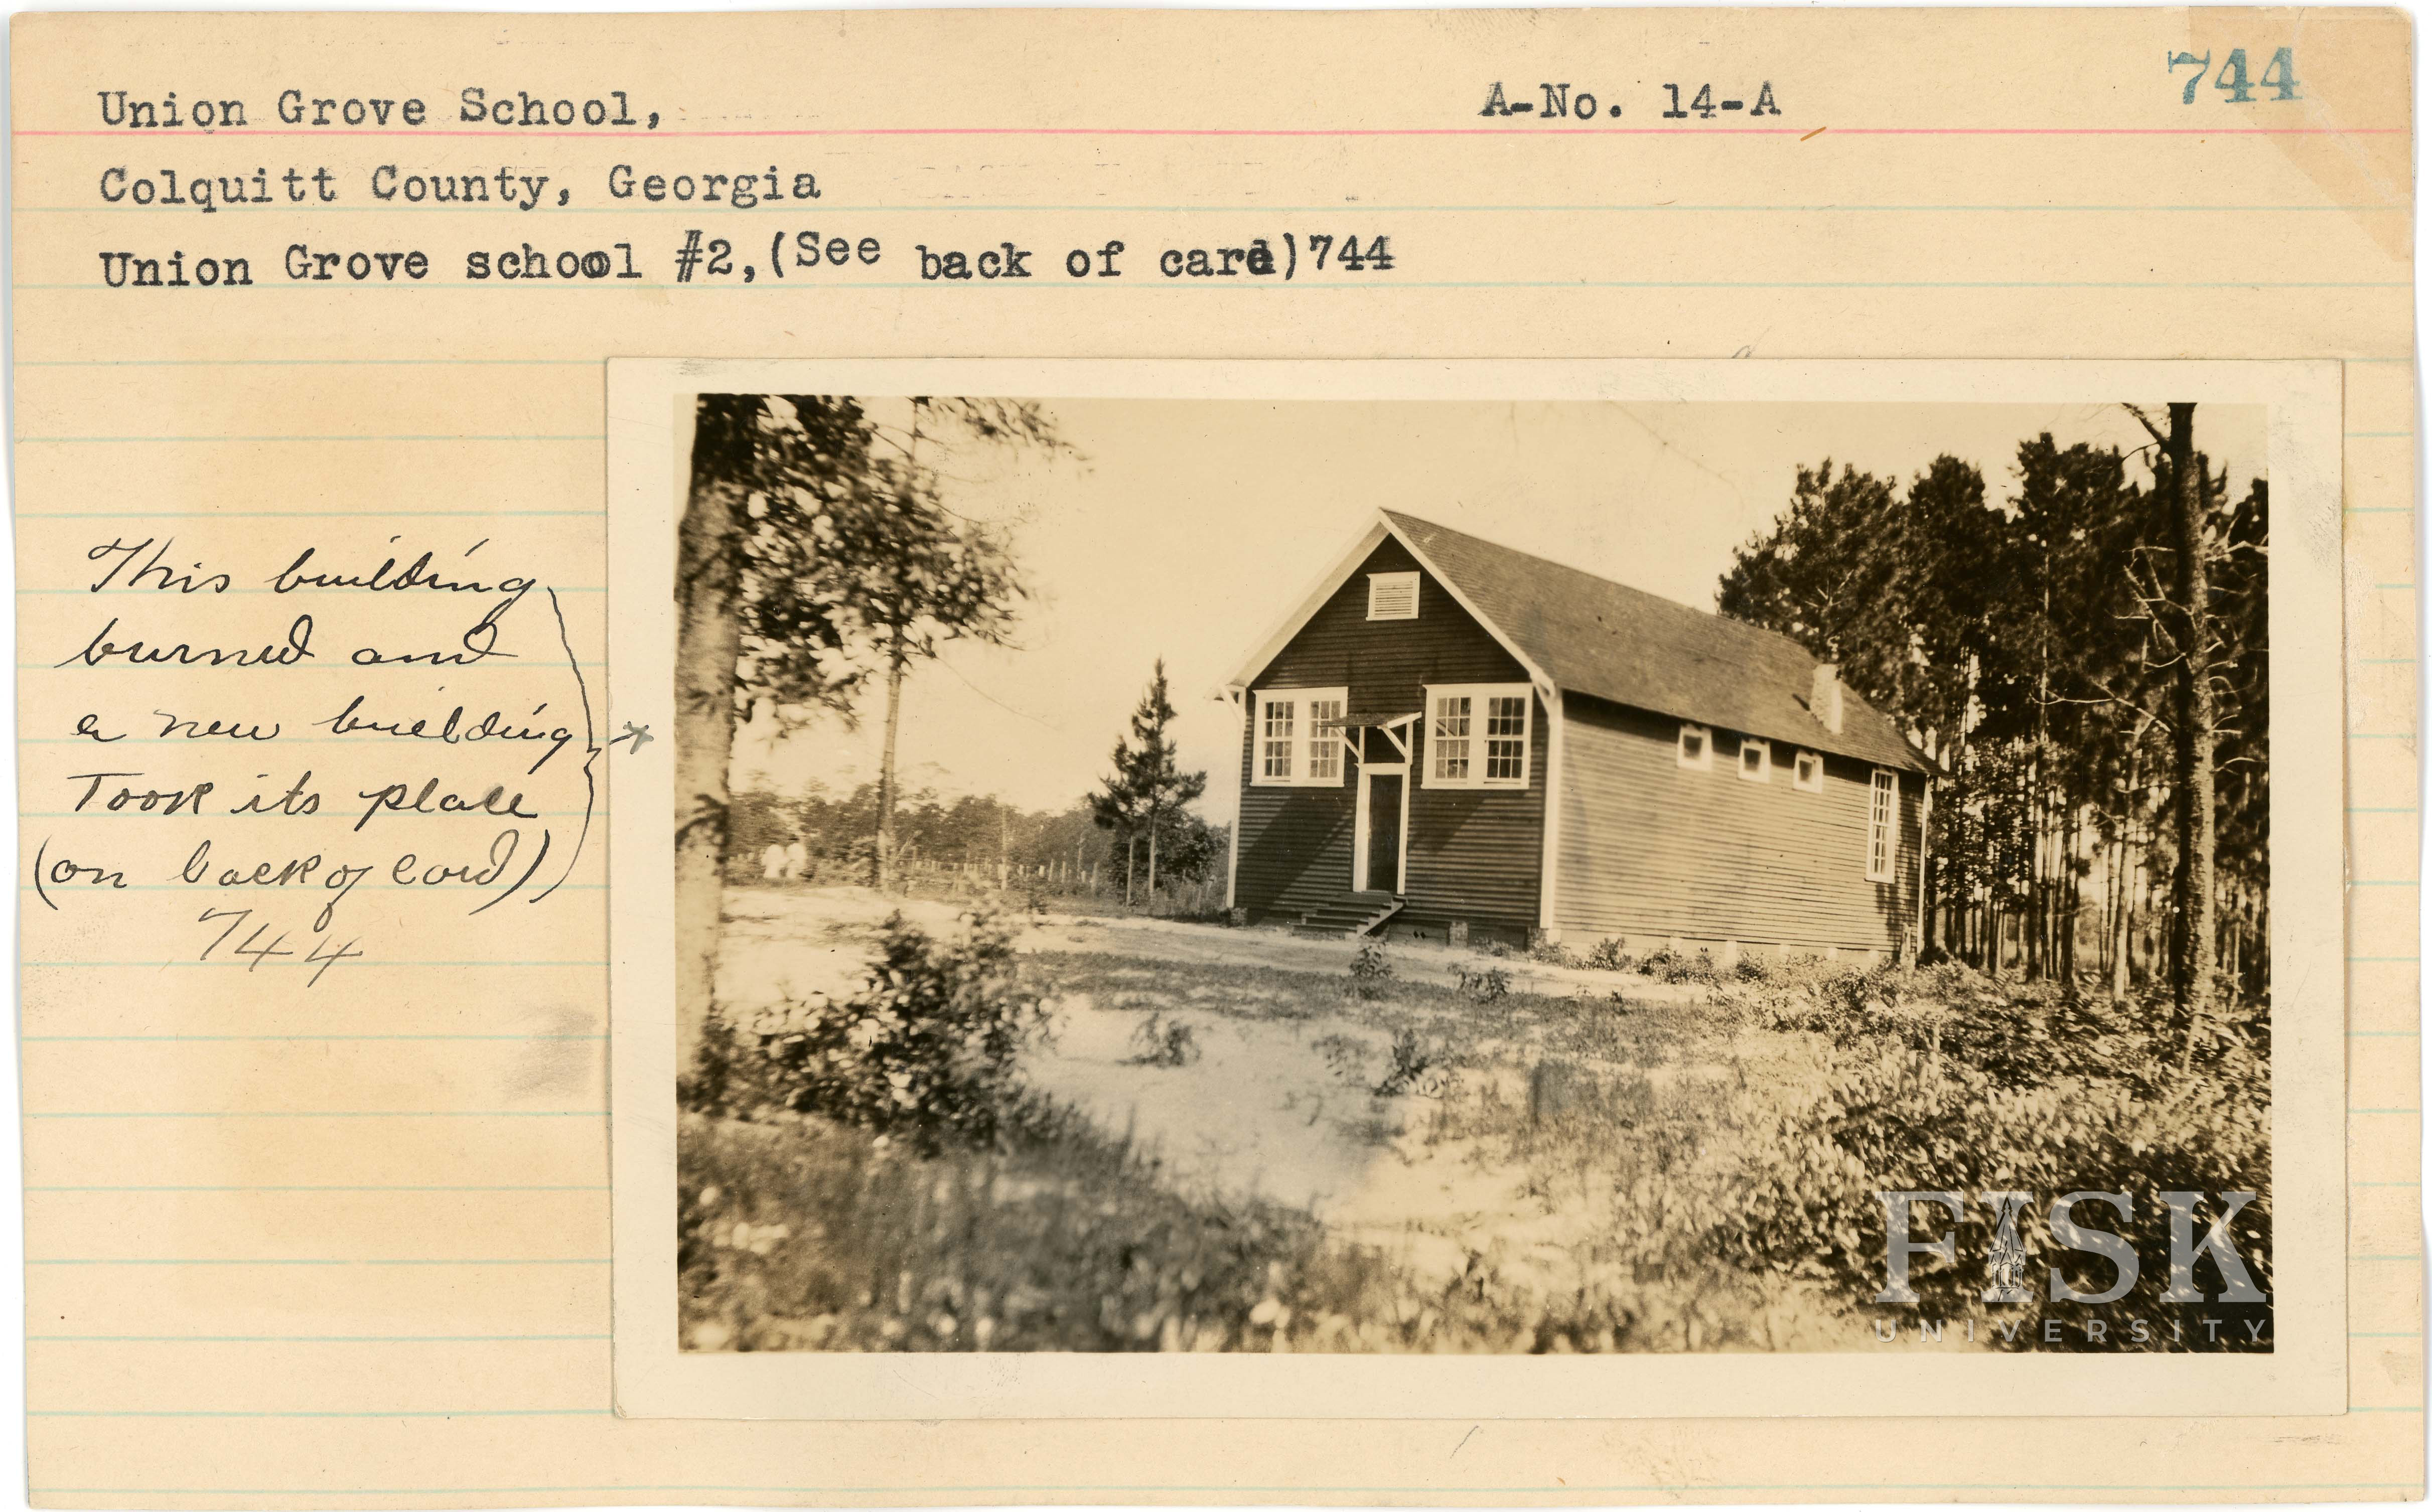 744
Union Grove School, A-No. 14-A
Colquitt County, Georgia
Union Grove school #2,(See back of card)744
This building
burned and
a new building
Took its place
(on back of card)
744
FISK
UNIVERSITY